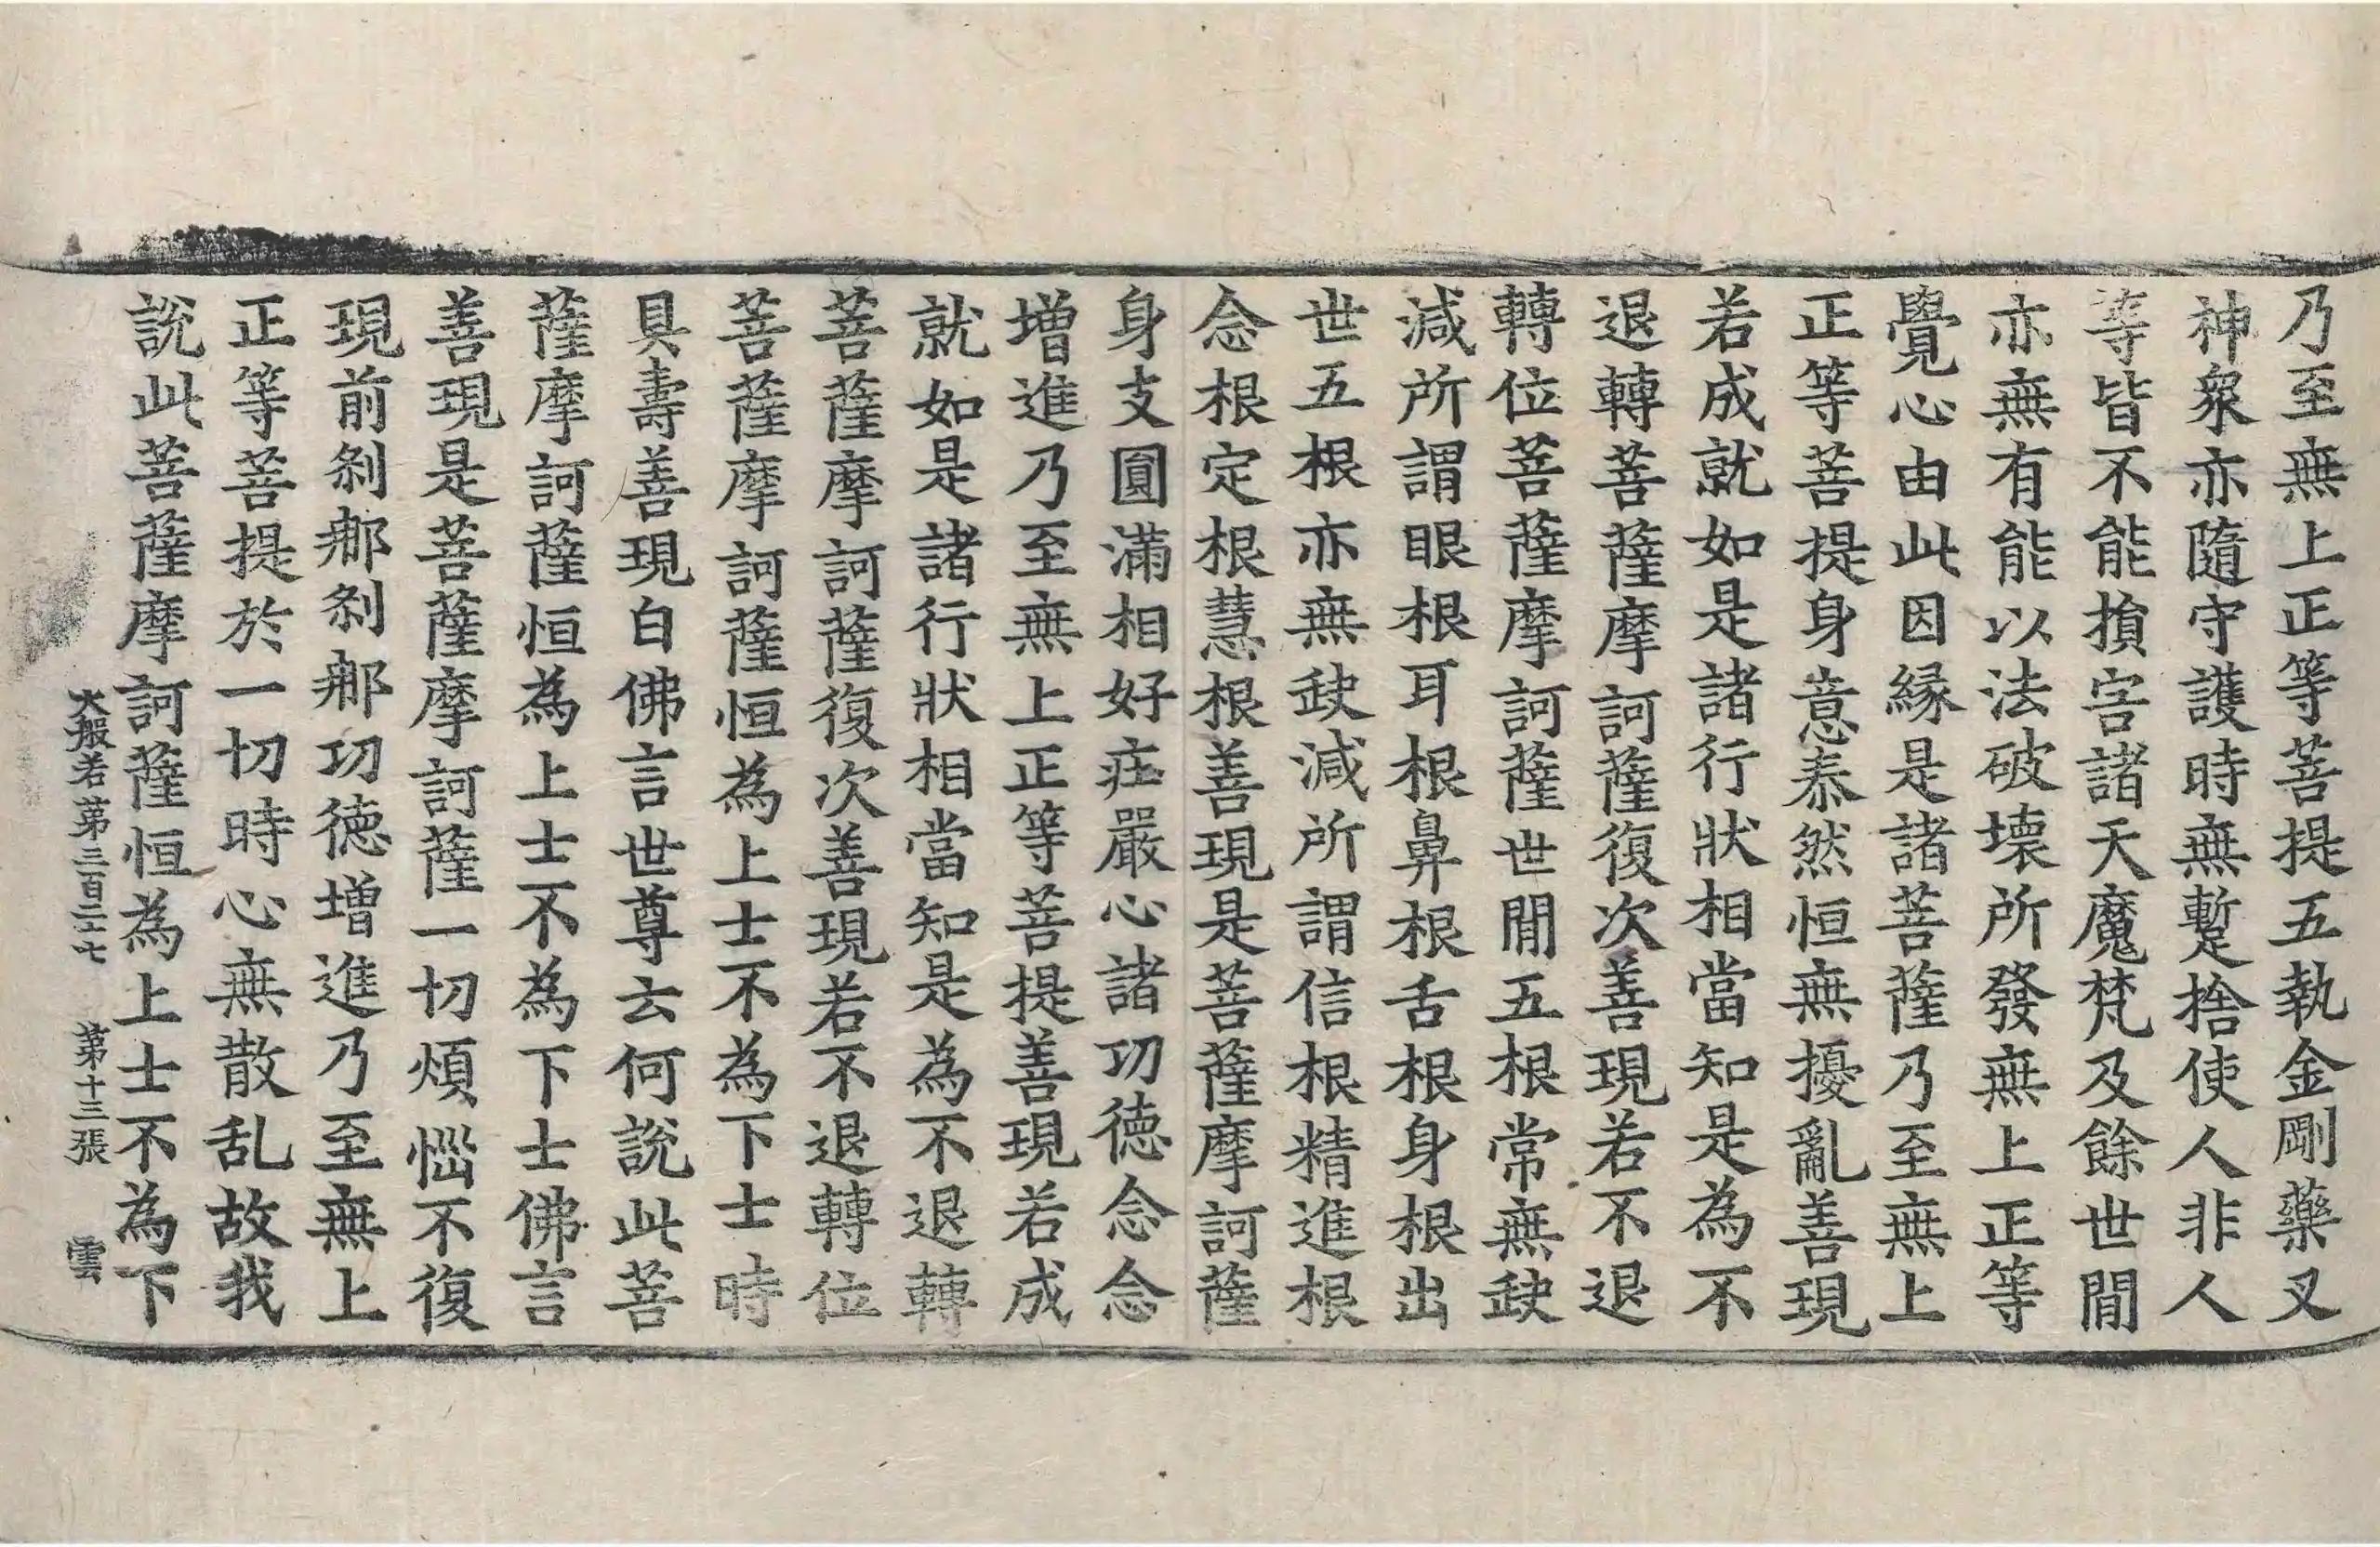 乃至無上正等菩提五執金剛藥叉
神衆亦隨守護時無蹔捨使人非人
等皆不能損害諸天魔梵及餘世間
亦無有能以法破壞所發無上正等
覺心由此因緣是諸菩薩乃至無上
正等菩提身意泰然恒無擾亂善現
若成就如是諸行狀相當知是為不
退轉菩薩摩訶薩復次善現若不退
轉位菩薩摩訶薩世間五根常無缺
減所謂眼根耳根鼻根舌根身根出
世五根亦無缺減所謂信根精進根
念根定根慧根善現是菩薩摩訶薩
身支圓滿相好莊嚴心諸功德念念
增進乃至無上正等菩提善現若成
就如是諸行狀相當知是為不退轉
菩薩摩訶薩復次善現若不退轉位
菩薩摩訶薩恒為上士不為下士時
具壽善現白佛言世尊云何說此菩
薩摩訶薩恒為上士不為下士佛言
善現是菩薩摩訶薩一切煩惱不復
現前剎那剎那功德增進乃至無上
正等菩提於一切時心無散乱故我
說此菩薩摩訶薩恒為上士不為下
大般若第三百二十七 第十三張 雲